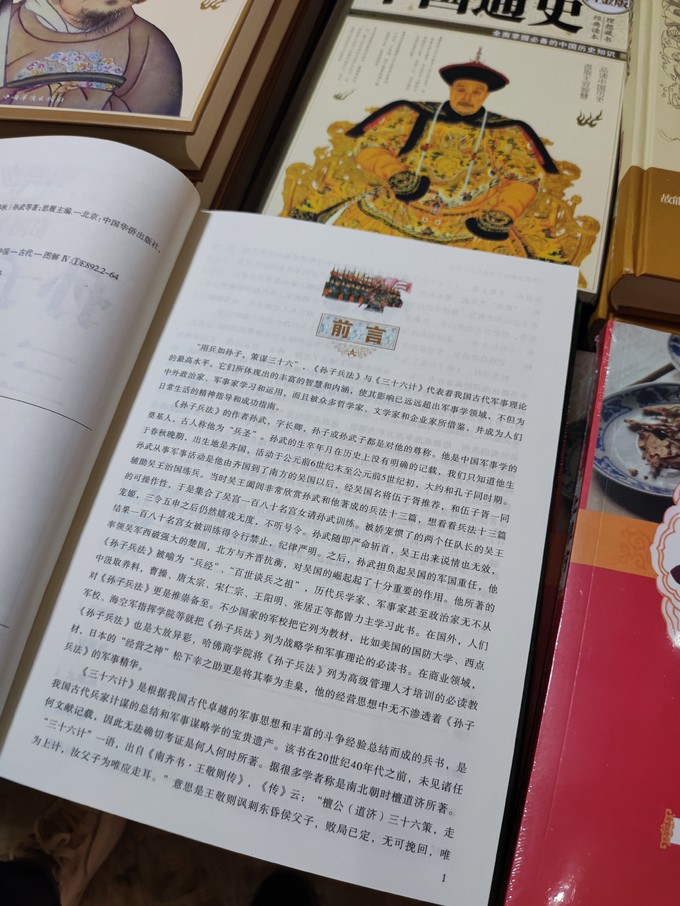 中国通史
全面掌握必备的中国历史知识
理想藏书
经典读本
孙武等著；思履主编.—北京：中国华侨出版社，
国—古代—图解 Ⅳ.①E892.2-64
前言
“用兵如孙子，策谋三十六”，《孙子兵法》与《三十六计》代表着我国古代军事理论
的最高水平，它们所体现出的丰富的智慧和内涵，使其影响已远远超出军事学领域，不但为
中外政治家、军事家学习和运用，而且被众多哲学家、文学家和企业家所借鉴，并成为人们
日常生活的精神指导和成功指南。
《孙子兵法》的作者孙武，字长卿，孙子或孙武子都是对他的尊称。他是中国军事学的
奠基人，古人称他为“兵圣”。孙武的生卒年月在历史上没有明确的记载，我们只知道他生
于春秋晚期，出生地是齐国，活动于公元前6世纪末至公元前5世纪初，大约和孔子同时期。
孙武从事军事活动是他由齐国到了南方的吴国以后，经吴国名将伍子胥推荐，和伍子胥一同
辅助吴王治国练兵。当时吴王阖闾非常欣赏孙武和他著成的兵法十三篇，想看看兵法十三篇
的可操作性，于是集合了吴宫一百八十名宫女请孙武训练。被娇宠惯了的两个任队长的吴王
宠姬，三令五申之后仍然嬉戏无度，不听号令。孙武随即严命斩首，吴王出来说情也无效，
结果一百八十名宫女被训练得令行禁止，纪律严明。之后，孙武担负起吴国的军国重任，他
率领吴军西破强大的楚国，北方与齐晋抗衡，对吴国的崛起起了十分重要的作用。他所著的
《孙子兵法》被喻为“兵经”、“百世谈兵之祖”，历代兵学家、军事家甚至政治家无不从
中汲取养料，曹操、唐太宗、宋仁宗、王阳明、张居正等都曾力主学习此书。在国外，人们
对《孙子兵法》更是推崇备至。不少国家的军校把它列为教材，比如美国的国防大学、西点
军校、海空军指挥学院等就把《孙子兵法》列为战略学和军事理论的必读书。在商业领域，
《孙子兵法》也是大放异彩，哈佛商学院将《孙子兵法》列为高级管理人才培训的必读教
材，日本的“经营之神”松下幸之助更是将其奉为圭臬，他的经营思想中无不渗透着《孙子
兵法》的军事精华。
《三十六计》是根据我国古代卓越的军事思想和丰富的斗争经验总结而成的兵书，是
我国古代兵家计谋的总结和军事谋略学的宝贵遗产。该书在20世纪40年代之前，未见诸任
何文献记载，因此无法确切考证是何人何时所著。据很多学者称是南北朝时檀道济所著。
“三十六计”一语，出自《南齐书·王敬则传》，《传》云：“檀公（道济）三十六策，走
为上计，汝父子为唯应走耳。”意思是王敬则讽刺东昏侯父子，败局已定，无可挽回，唯
1